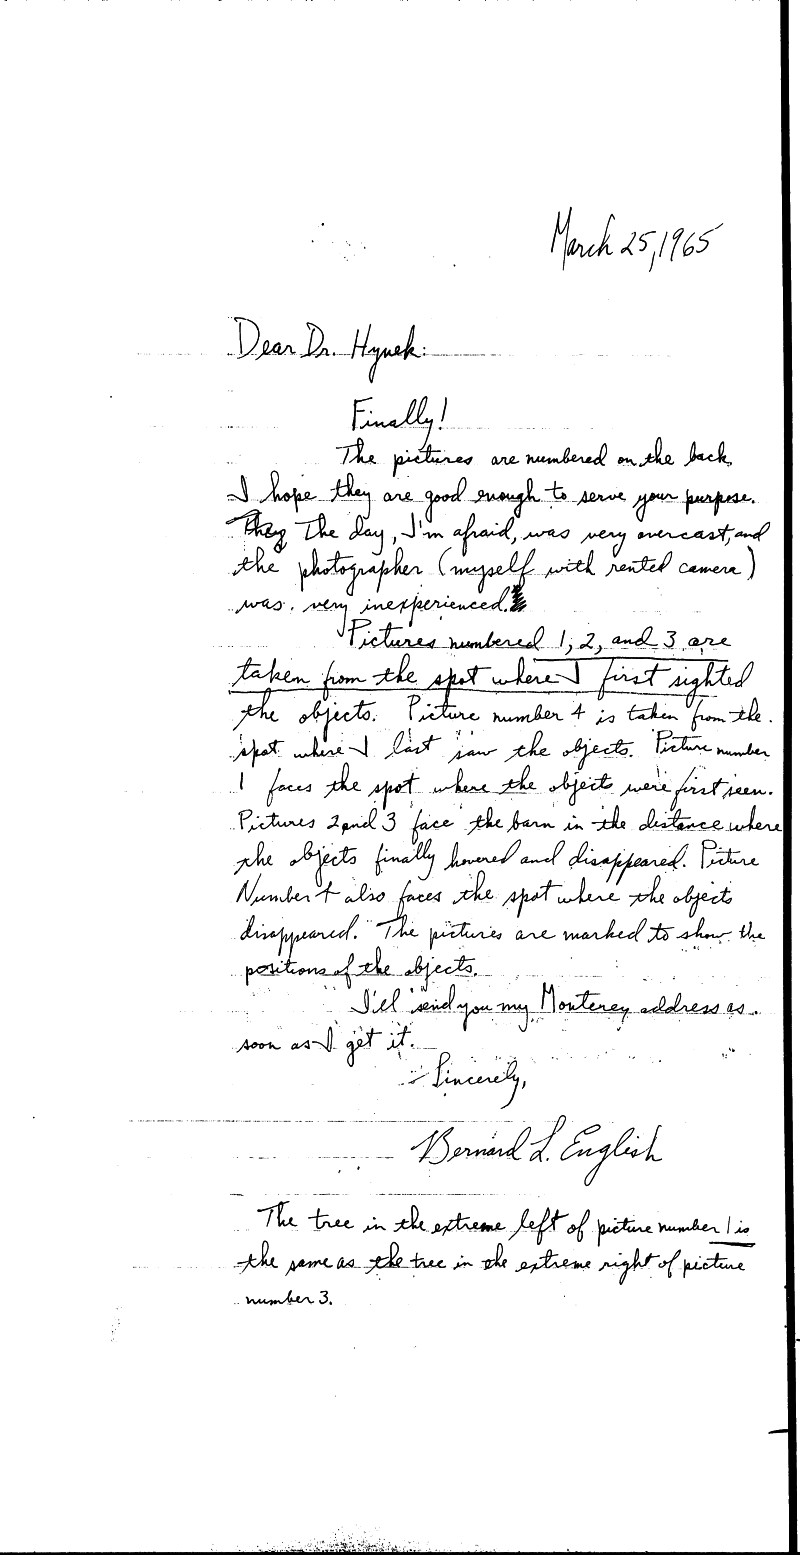 March 25, 1965
Dear Dr. Hynek:
Finally!
The pictures are numbered on the back.
I hope they are good enough to serve your purpose.
They The day, I'm afraid, was very overcast, and
the photographer (myself with rented camera)
was very inexperienced.
Pictures numbered 1, 2, and 3 are
taken from the spot where I first sighted
the objects. Picture number 4 is taken from the
spot where I last saw the objects. Picture number
1 faces the spot where the objects were first seen.
Pictures 2 and 3 face the barn in the distance where
the objects finally hovered and disappeared. Picture
Number 4 also faces the spot where the objects
disappeared. The pictures are marked to show the
positions of the objects.
I'll send you my Monterey address as
soon as I get it.
Sincerely,
Bernard L. English
The tree in the extreme left of picture number 1 is
the same as the tree in the extreme right of picture
number 3.